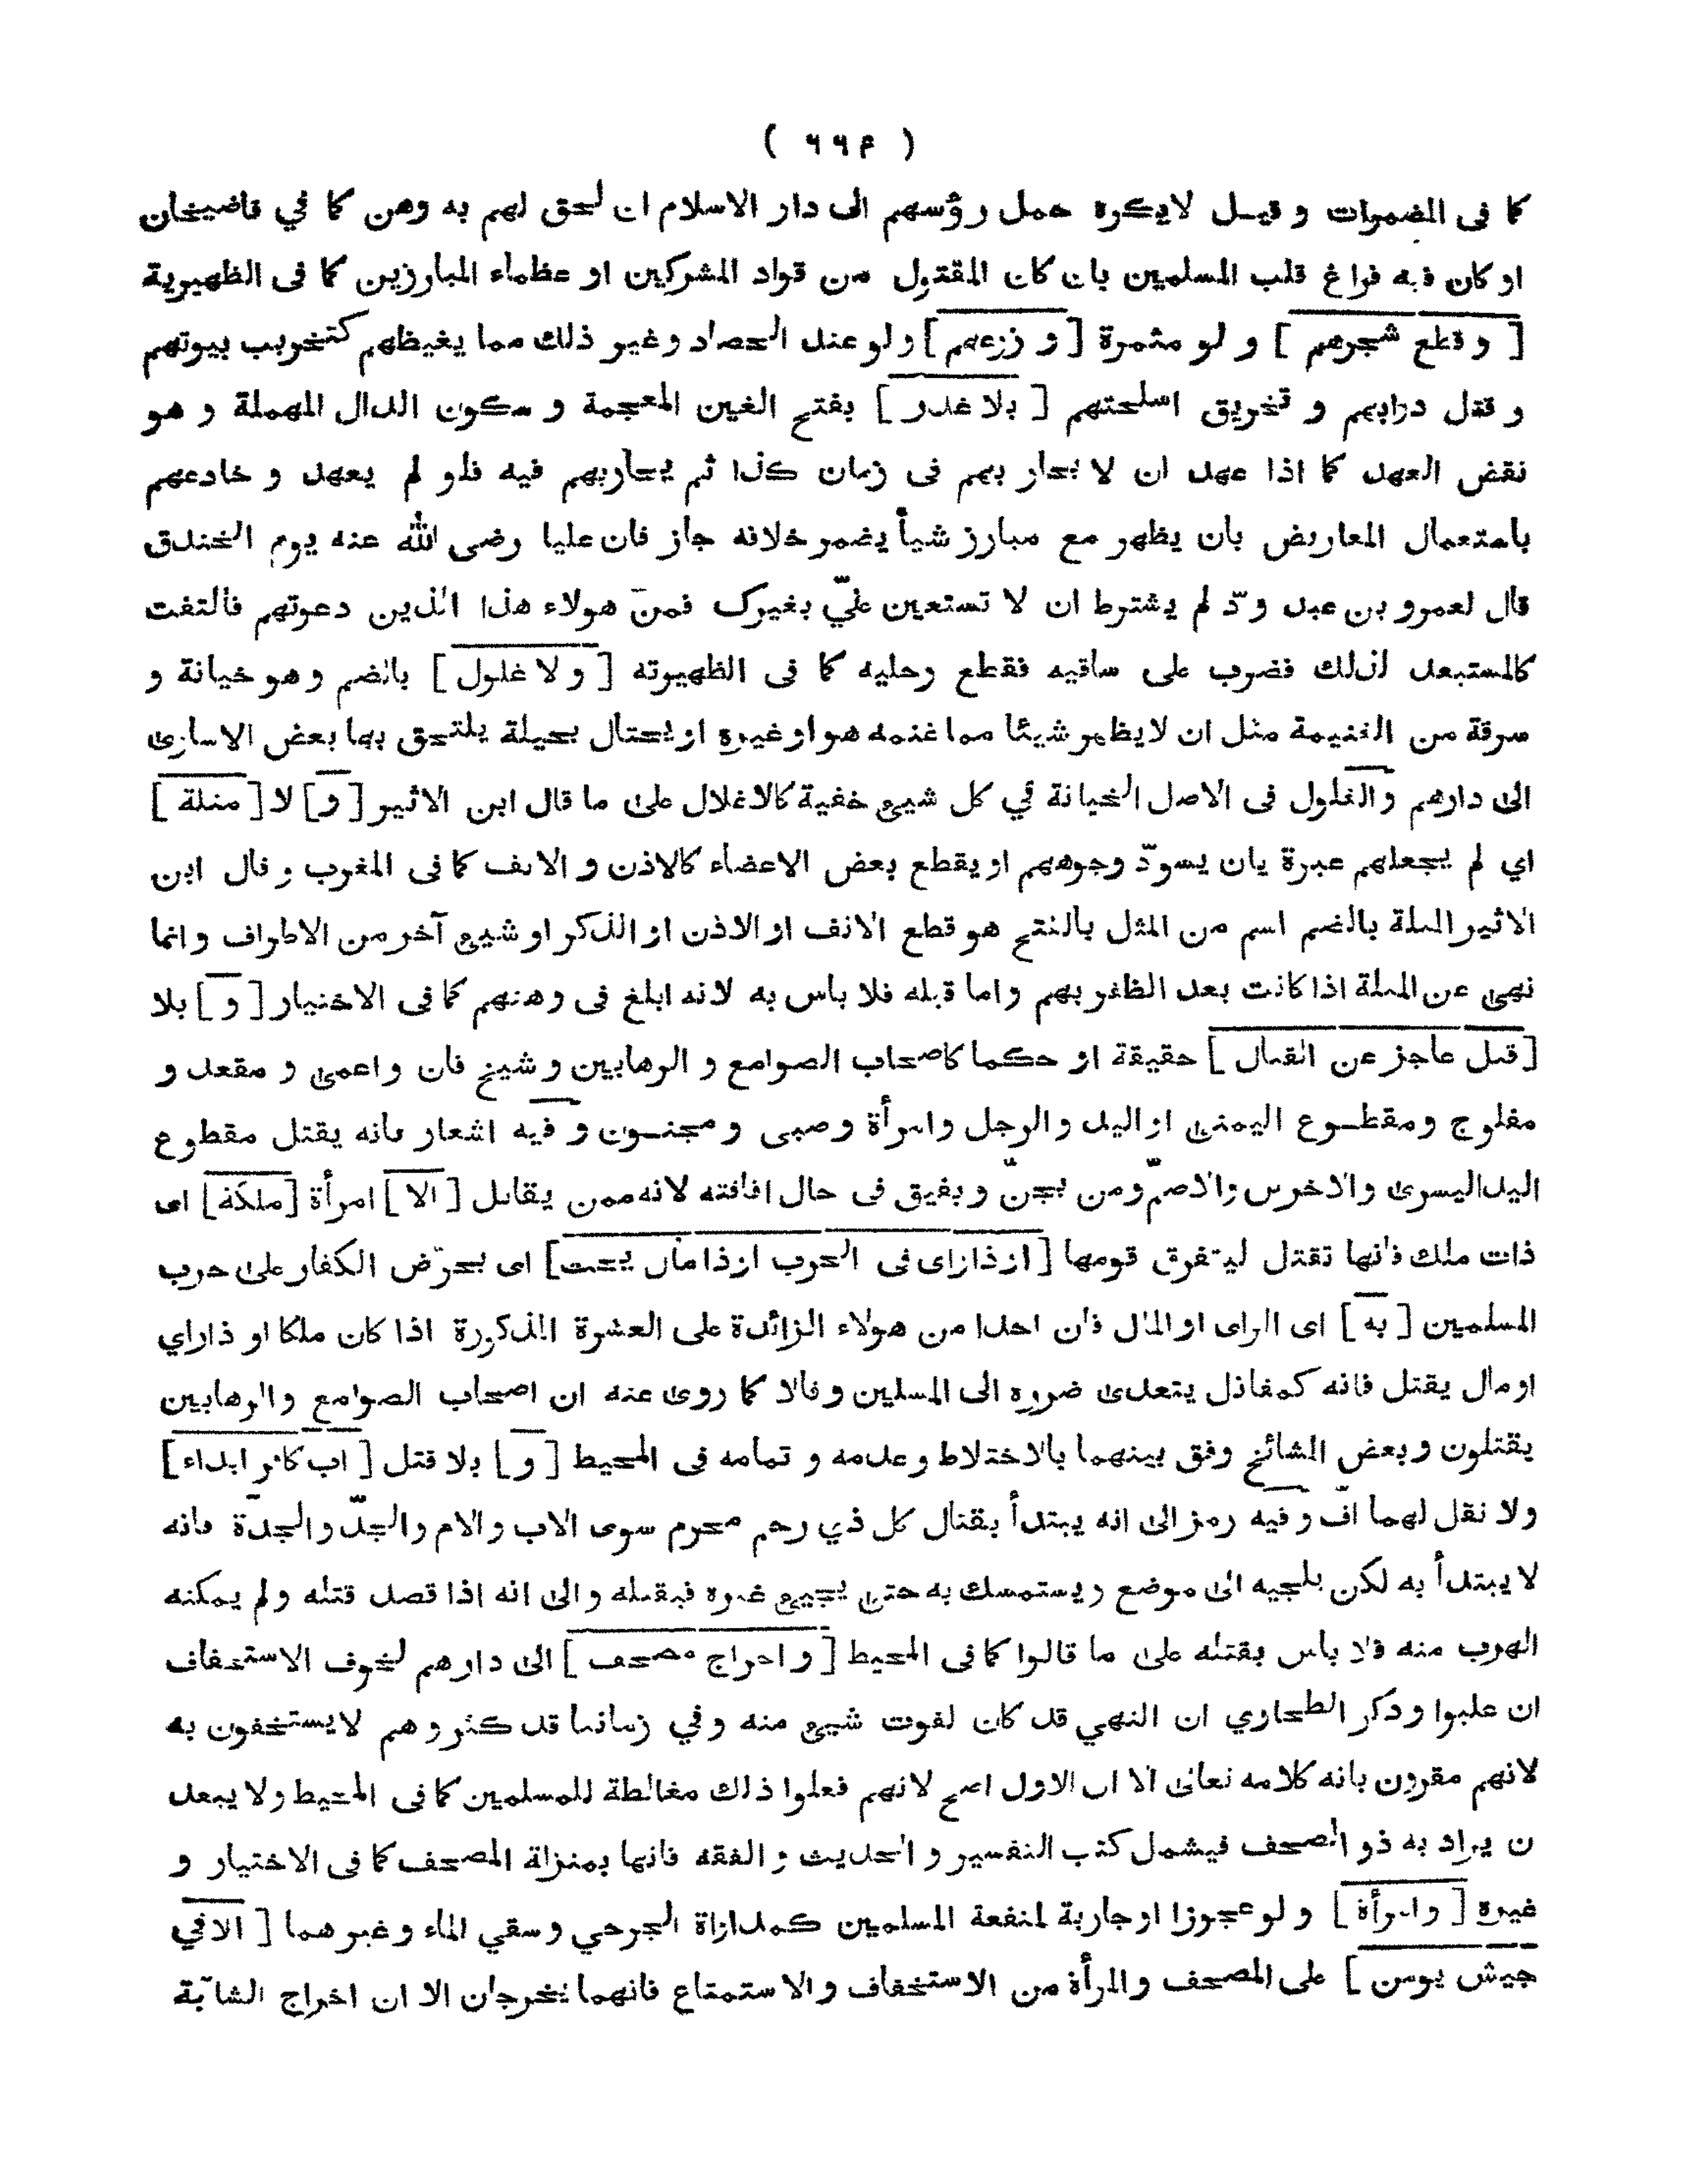 ( ٦٦٤ )
كما فى المضمرات و قيـل لايكره حمل رؤسهم الى دار الاسلام ان لحق لهم به وهن كما في قاضيخان
او كان فيه فراغ قلب المسلمين بان كان المقتول من قواد المشركين او عظماء المبارزين كما فى الظهيرية
[ و قطع شجرهم ] و لو مثمرة [ و زرعهم ] ولو عند الحصاد وغير ذلك مما يغيظهم كتخريب بيوتهم
و قتل دوابهم و تخريق اسلحتهم [ بلا غدر ] بفتح الغين المعجمة و سكون الدال المهملة و هو
نقض العهد كما اذا عهد ان لا يحار بهم فى زمان كذا ثم يحاربهم فيه فلو لم يعهد و خادعهم
باستعمال المعاريض بان يظهر مع مبارز شيأ يضمر خلافه جاز فان عليا رضى الله عنه يوم الخندق
قال لعمرو بن عبد ودّ لم يشترط ان لا تستعين عليّ بغيرك فمن هولاء هذا الذين دعوتهم فالتفت
كالمستبعد لذلك فضرب على ساقيه فقطع رجليه كما فى الظهيرته [ و لا غلول ] بالضم وهو خيانة و
سرقة من الغنيمة مثل ان لايظهر شيئا مما غنمه هو او غيره او يحتال بحيلة يلتحق بها بعض الاسارى
الى دارهم والغلول فى الاصل الخيانة في كل شيئ خفية كالاغلال على ما قال ابن الاثير [ و ] لا [ مثلة ]
اي لم يجعلهم عبرة بان يسودّ وجوههم او يقطع بعض الاعضاء كالاذن و الانف كما فى المغرب و قال ابن
الاثير المثلة بالضم اسم من المثل بالفتح هو قطع الانف او الاذن او الذكر او شيئ آخر من الاطراف و انما
نهى عن المثلة اذا كانت بعد الظفر بهم واما قبله فلا باس به لانه ابلغ فى وهنهم كما فى الاختيار [ و ] بلا
[ قتل عاجز عن القتال ] حقيقة او حكما كاصحاب الصوامع و الرهابين و شيخ فان و اعمى و مقعد و
مفلوج ومقطـوع اليمنى او اليد والرجل وامرأة وصبى و مجنـون و فيه اشعار بانه يقتل مقطوع
اليد اليسرى والاخرس والاصمّ ومن يجنّ ويفيق فى حال افاقته لانه ممن يقاتل [ الا ] امرأة [ ملكة ] اى
ذات ملك فانها تقتل ليتفرق قومها [ او ذا راى فى الحرب او ذا مال يحث ] اى يحرّض الكفار على حرب
المسلمين [ به ] اى الراى او المال فان احدا من هولاء الزائدة على العشرة المذكورة اذا كان ملكا او ذاراي
او مال يقتل فانه كمقاتل يتعدى ضرره الى المسلين وقالا كما روى عنه ان اصحاب الصوامع والرهابين
يقتلون وبعض المشائخ وفق بينهما بالاختلاط وعدمه و تمامه فى المحيط [ و ] بلا قتل [ اب كافر ابتداء ]
ولا نقل لهما افّ وفيه رمز الى انه يبتدأ بقتال كل ذي رحم محرم سوى الاب والام والجدّ والجدّة فانه
لا يبتدأ به لكن يلجيه الى موضع ويستمسك به حتى يجيئ غيره فيقتله والى انه اذا قصد قتله ولم يمكنه
الهرب منه فلا باس بقتله على ما قالوا كما فى المحيط [ و اخراج مصحف ] الى دارهم لخوف الاستخفاف
ان غلبوا وذكر الطحاوي ان النهي قد كان لفوت شيئ منه وفي زماننا قد كثر وهم لايستخفون به
لانهم مقرون بانه كلامه تعالى الا ان الاول اصح لانهم فعلوا ذلك مغالطة للمسلمين كما فى المحيط ولا يبعد
ن يراد به ذو الصحف فيشمل كتب التفسير و الحديث و الفقه فانها بمنزلة المصحف كما فى الاختيار و
غيره [ وامرأة ] و لو عجوزا او جارية لمنفعة المسلمين كمداواة الجرحي وسقي الماء وغيرهما [ الافي
جيش يومن ] على المصحف والمرأة من الاستخفاف والاستمتاع فانهما يخرجان الا ان اخراج الشابّة